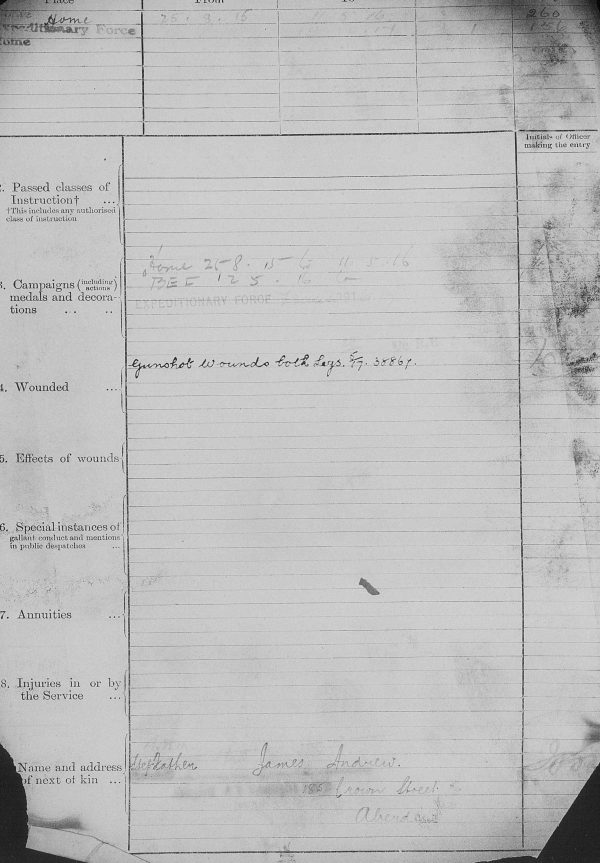 Place From To
Home 25. 8. 15 11 5 16 260
Expeditionary Force
Home
Initials of Officer
making the entry
2. Passed classes of
Instruction† ...
†This includes any authorised
class of instruction
Home 25 8. 15 to 11. 5. 16
BEF 12 5. 16 to
EXPEDITIONARY FORCE
3. Campaigns (including actions)
medals and decora-
tions .. ..
Gunshot Wounds both Legs. 38867.
4. Wounded ...
5. Effects of wounds
6. Special instances of
gallant conduct and mentions
in public despatches ...
7. Annuities ...
8. Injuries in or by
the Service ...
Name and address
of next of kin ...
Stepfather James Andrew.
185 Crown Street
Aberdeen